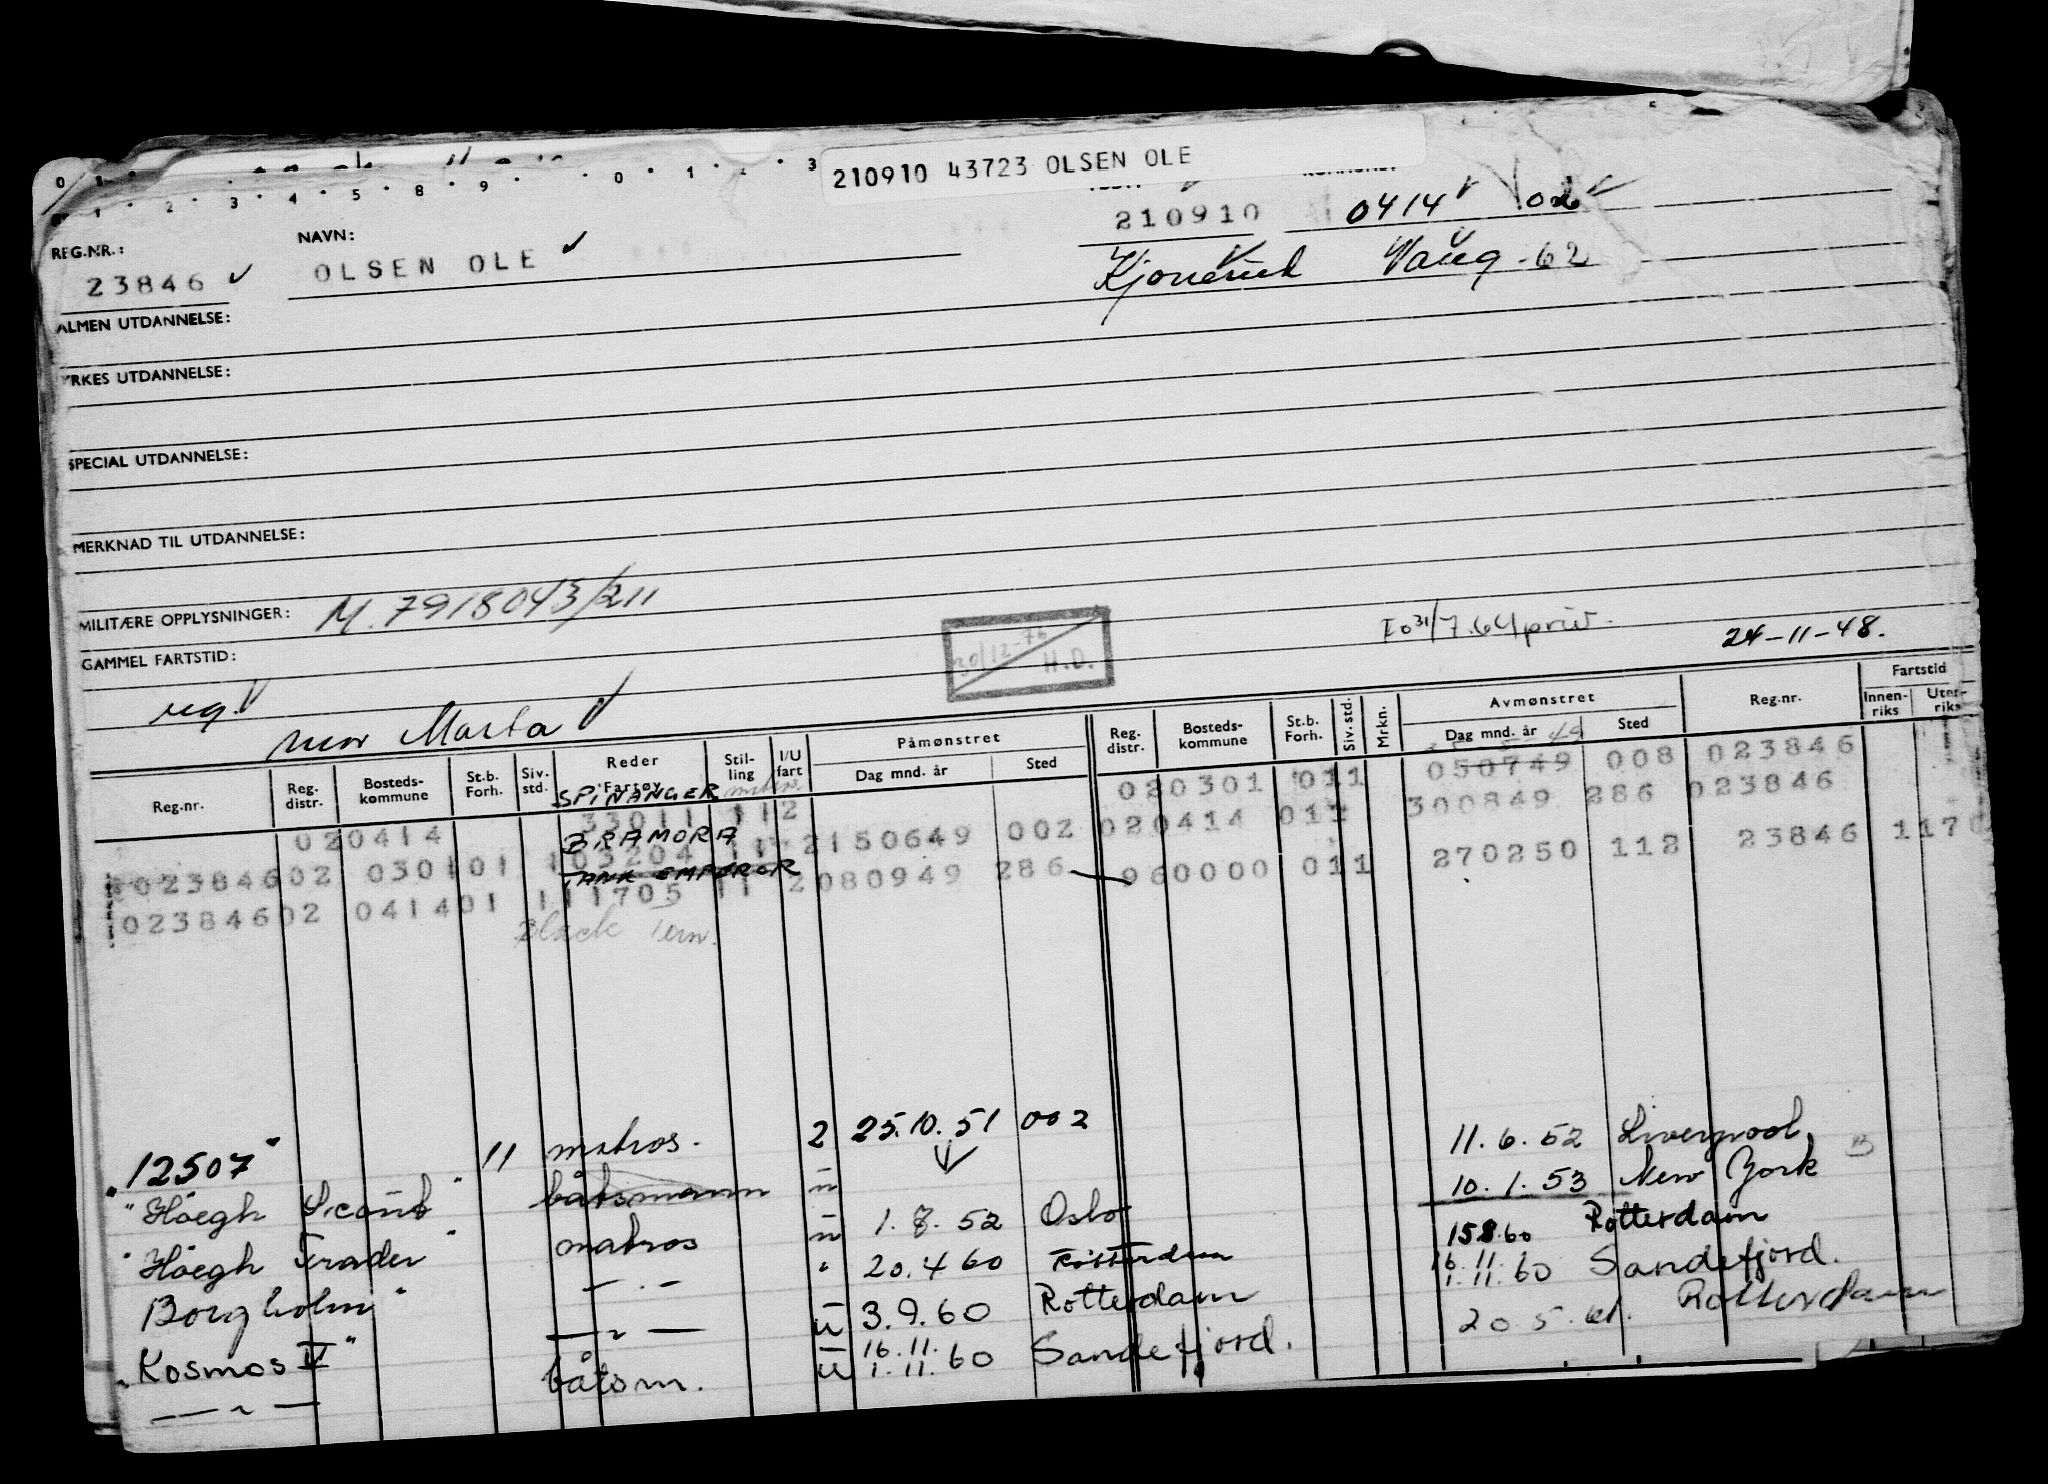 210910 43723 OLSEN OLE
REG.NR.: 23846 NAVN: OLSEN OLE 210910 0414 02
Vang - 62
ALMEN UTDANNELSE:
YRKES UTDANNELSE:
SPECIAL UTDANNELSE:
MERKNAD TIL UTDANNELSE:
MILITÆRE OPPLYSNINGER: M. 7918043/211
30/12-76 H.D.
24-11-48.
GAMMEL FARTSTID:
mor Marta
Reg.nr. Reg. distr. Bosteds-kommune St.b. Forh. Siv. std. Reder Fartøy Stil-ling I/U fart Påmønstret Dag mnd. år Sted Reg. distr. Bosteds-kommune St.b. Forh. Siv. std. Mrkn. Avmønstret Dag mnd. år Sted Reg.nr. Fartstid Innen-riks Uten-riks
SPINANGER matros
020414 33011 112 020301 011 050749 008 023846
BRAMORA
023846 02 030101 103204 11 2 150649 002 020414 011 300849 286 023846
TANK EMPEROR
023846 02 041401 111705 11 2 080949 286 960000 011 270250 112 23846 117
Black
"12507" 11 matros. 2 25.10.51 002 11.6.52 Liverpool
"Höegh båtsmann 10.1.53 New York
"Höegh Trader" matros 1.8.52 Oslo
Borgholm" 20.4.60 Rotterdam 15.8.60 Rotterdam
Kosmos IV" 3.9.60 Rotterdam 16.11. 1.11.60 Sandefjord.
— " — båtsm. 16.11. 1.11.60 Sandefjord. 20.5.61. Rotterdam